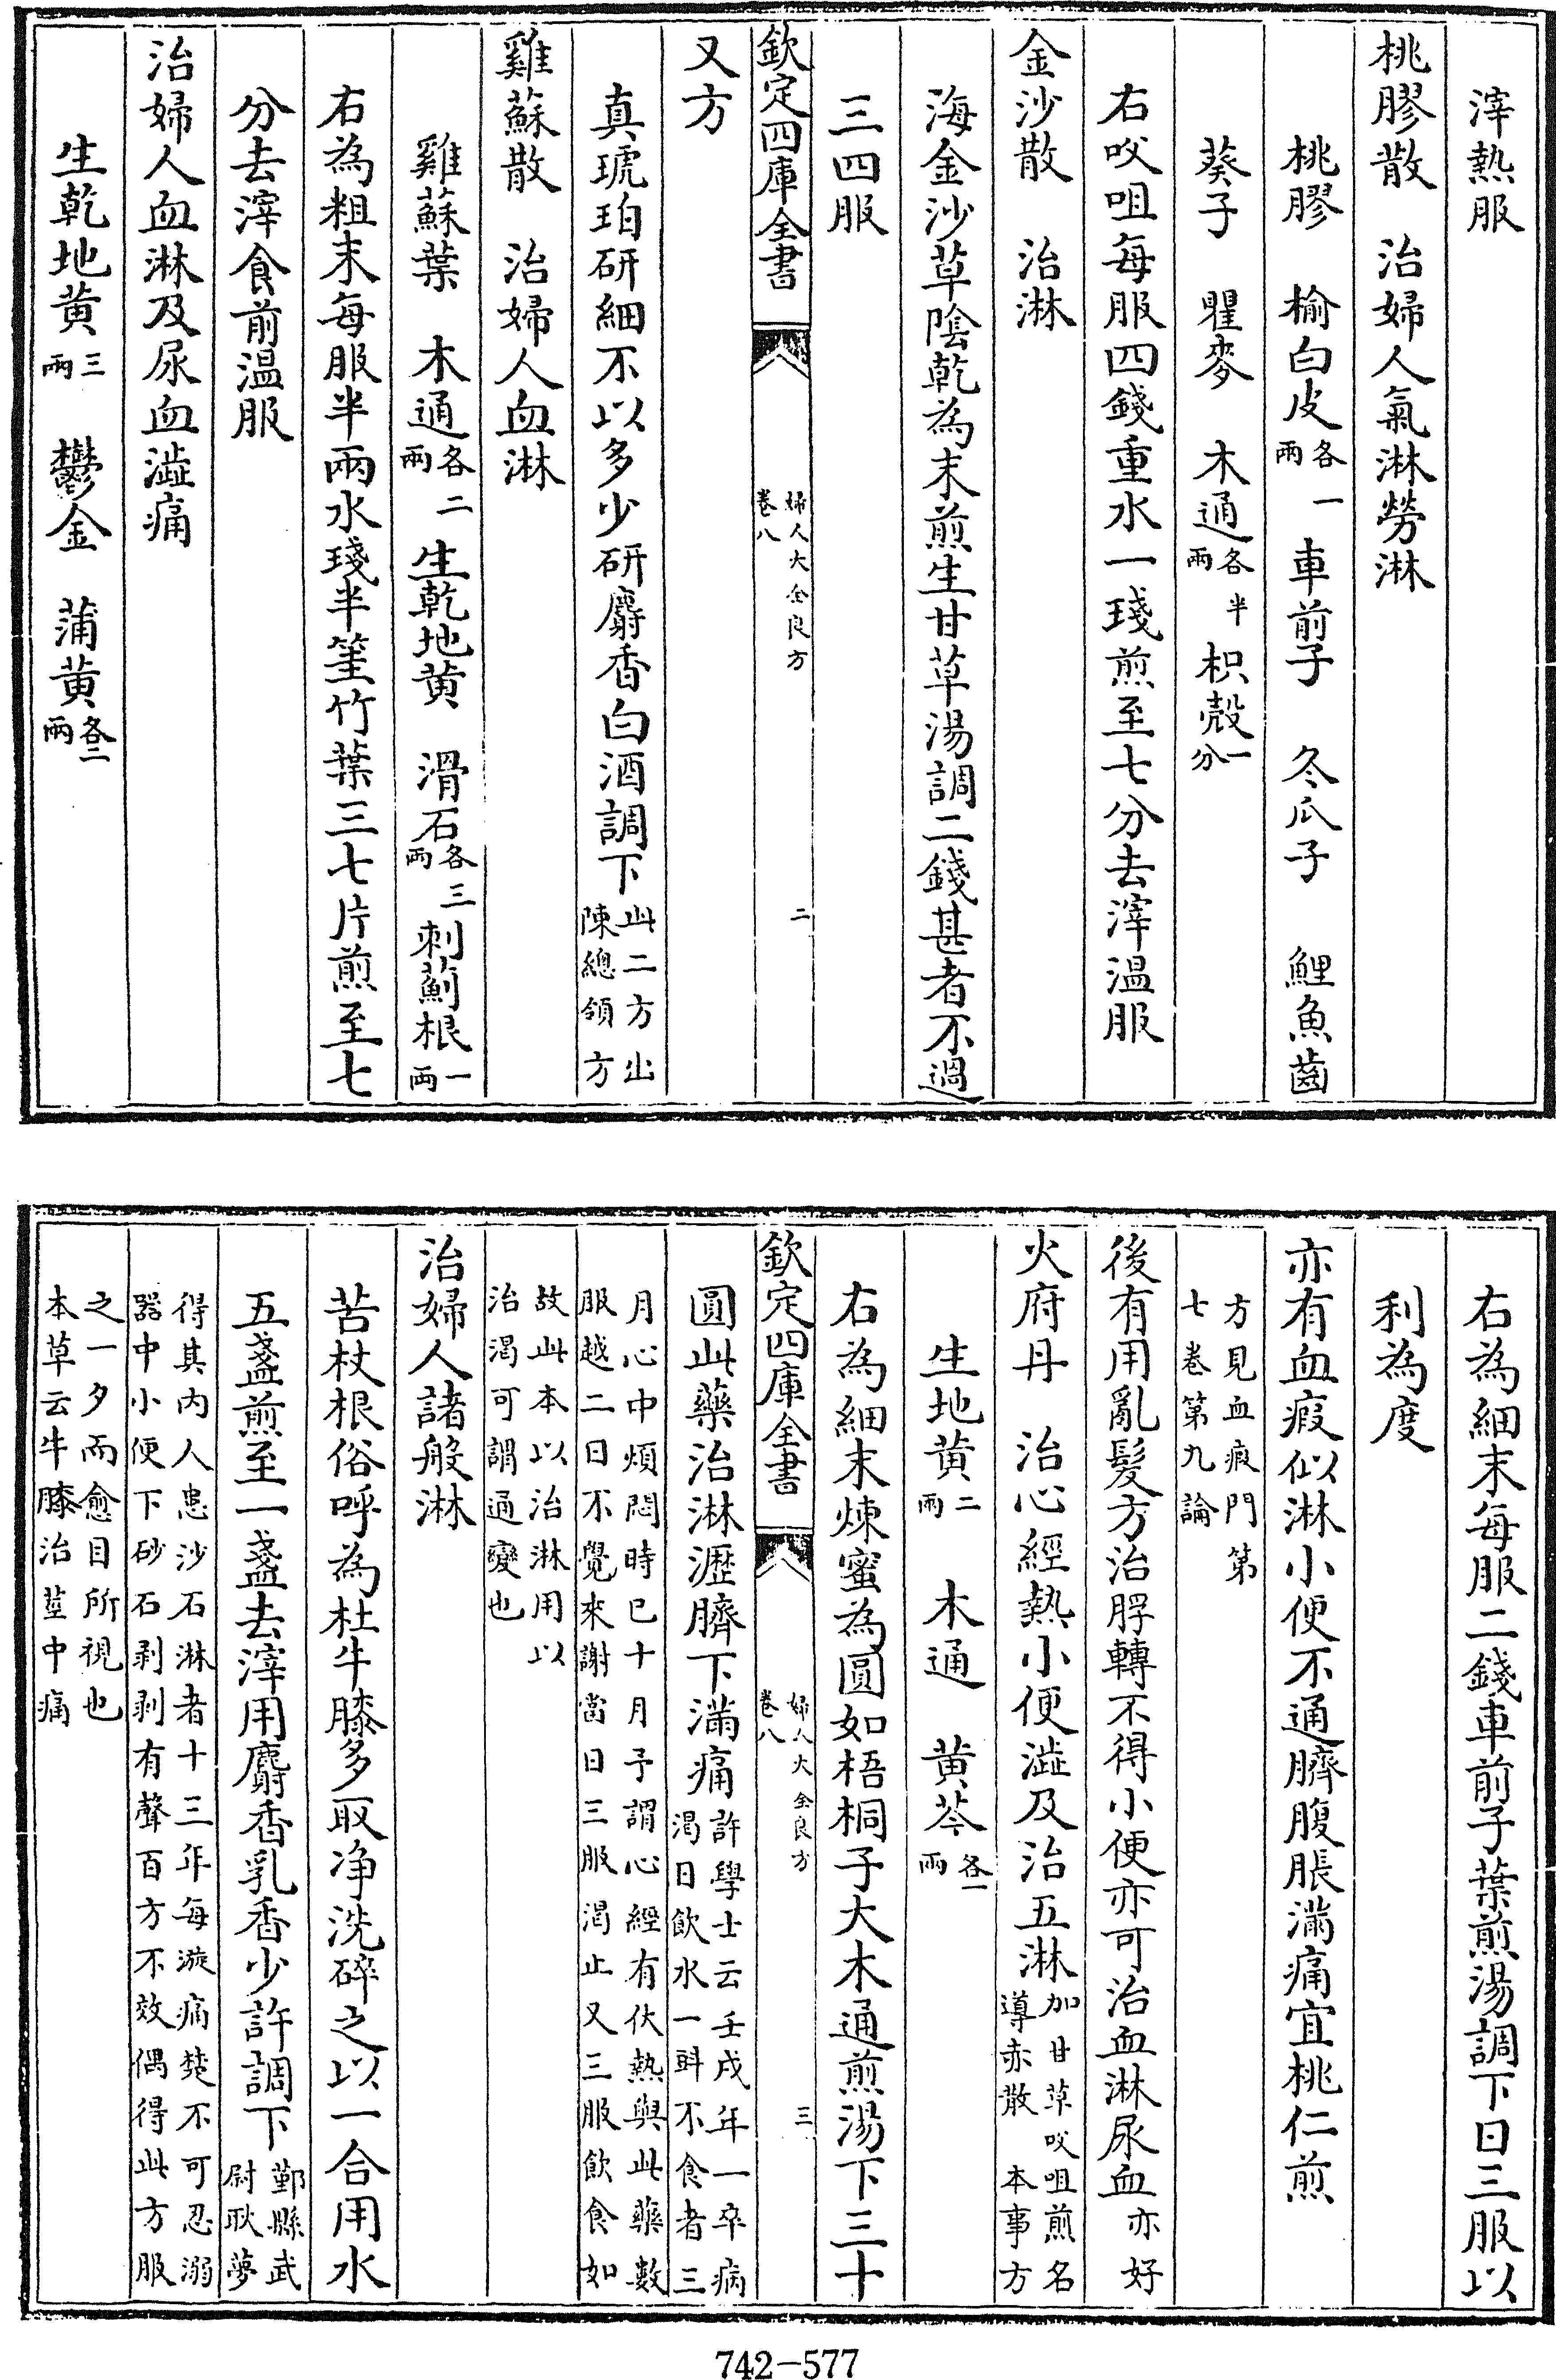 滓熱服
桃膠散　治婦人氣淋勞淋
桃膠　榆白皮各一兩　車前子　冬瓜子　鯉魚齒
葵子　瞿麥　木通各半兩　枳殼一分
右㕮咀每服四錢重水一琖煎至七分去滓温服
金沙散　治淋
海金沙草陰乾為末煎生甘草湯調二錢甚者不過
三四服
欽定四庫全書　婦人大全良方卷八　二
又方
真琥珀研細不以多少研麝香白酒調下此二方出陳總領方
雞蘇散　治婦人血淋
雞蘇葉　木通各二兩　生乾地黄　滑石各三兩　刺薊根一兩
右為粗末每服半兩水琖半箽竹葉三七片煎至七
分去滓食前温服
治婦人血淋及尿血澁痛
生乾地黄三兩　鬱金　蒲黄各二兩
右為細末每服二錢車前子葉煎湯調下日三服以
利為度
亦有血瘕似淋小便不通臍腹脹滿痛宜桃仁煎
方見血瘕門第七卷第九論
後有用亂髮方治脬轉不得小便亦可治血淋尿血亦好
火府丹　治心經熱小便澁及治五淋加甘草㕮咀煎名導赤散　本事方
生地黄二兩　木通　黄芩各一兩
右為細末煉蜜為圓如梧桐子大木通煎湯下三十
欽定四庫全書　婦人大全良方卷八　三
圓此藥治淋瀝臍下滿痛許學士云壬戌年一卒病渇日飲水一㪷不食者三
月心中煩悶時已十月予謂心經有伏熱與此藥數服越二日不覺來謝當日三服渇止又三服飲食如
故此本以治淋用以治渇可謂通變也
治婦人諸般淋
苦杖根俗呼為杜牛膝多取净洗碎之以一合用水
五盞煎至一盞去滓用麝香乳香少許調下鄞縣武尉耿夢
得其内人患沙石淋者十三年每漩痛楚不可忍溺器中小便下砂石剥剥有聲百方不效偶得此方服
之一夕而愈目所視也本草云牛膝治莖中痛
742-577